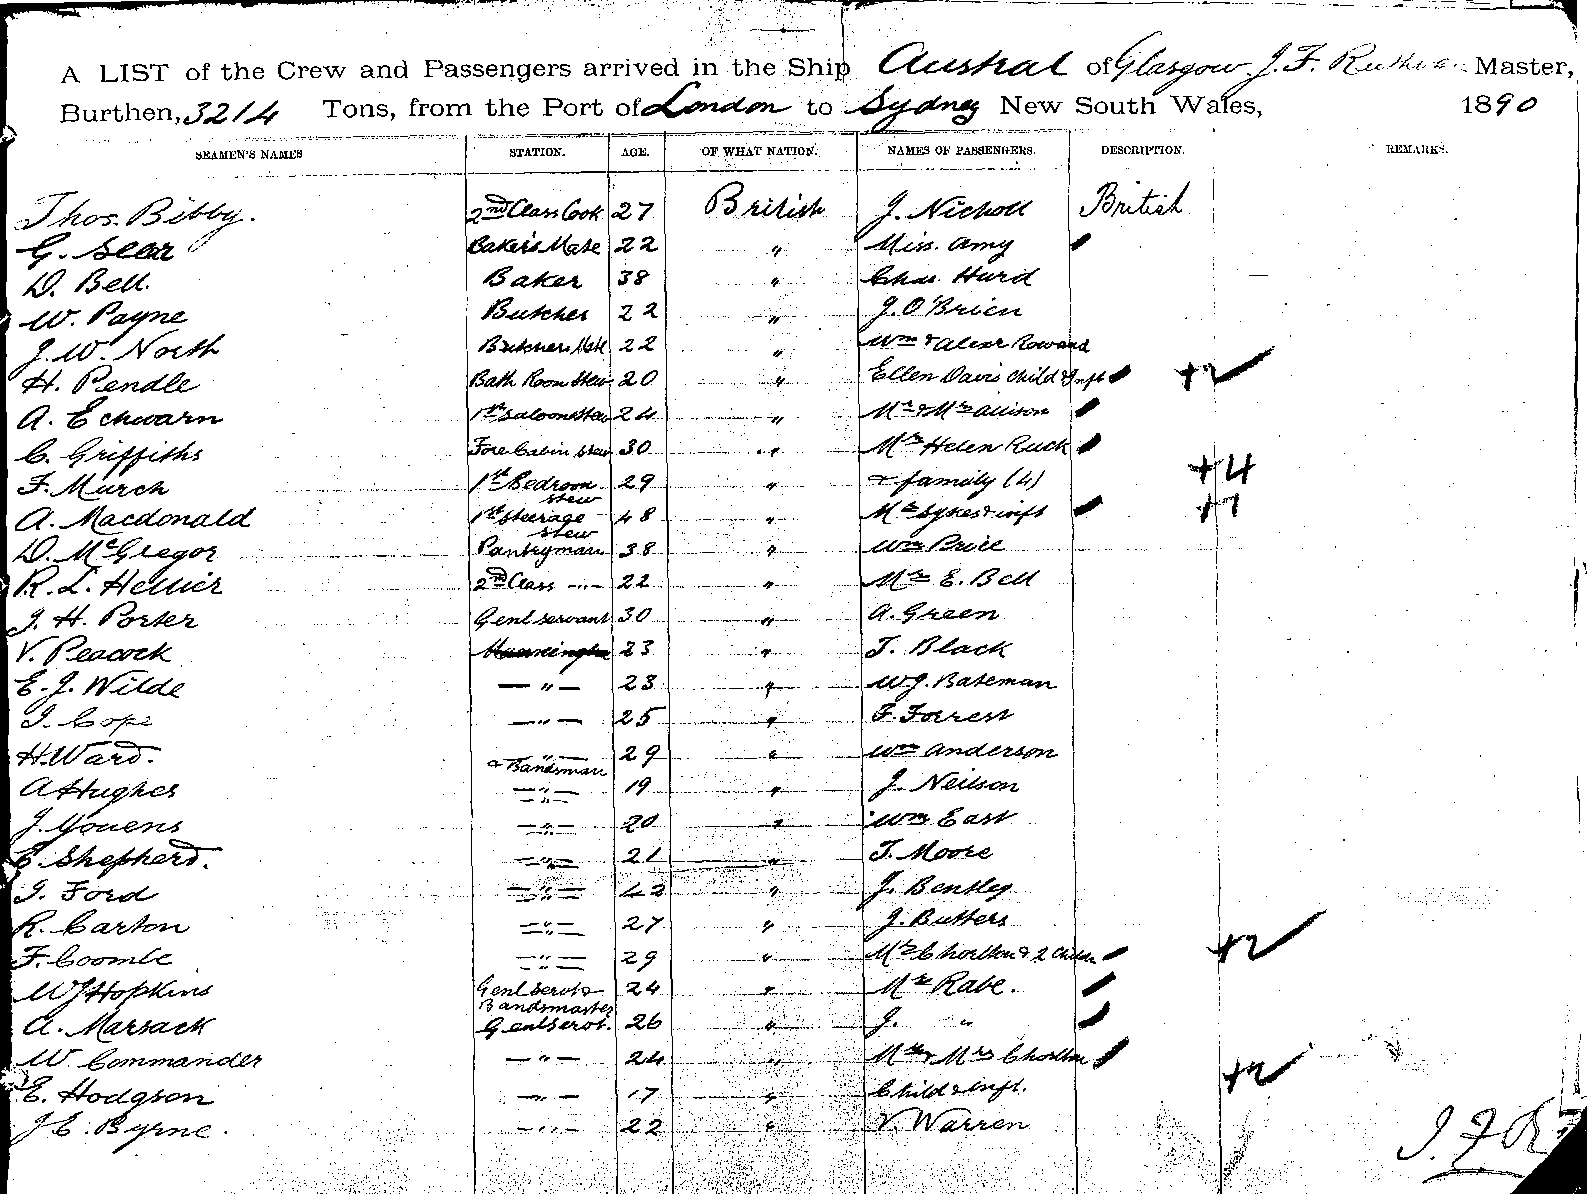 A LIST of the Crew and Passengers arrived in the Ship Austral of Glasgow J. F. Ruthven Master,
Burthen, 3214 Tons, from the Port of London to Sydney New South Wales, 1890
SEAMEN'S NAMES STATION. AGE. OF WHAT NATION. NAMES OF PASSENGERS. DESCRIPTION. REMARKS.
Thos. Bibby. 2nd Class Cook 27 British J. Nicholl British
G. Sear Baker's Mate 22 " Miss. Amy
D. Bell. Baker 38 " Chas. Hurd
W. Payne Butcher 22 " J. O'Brien
J. W. North Butchers Mate 22 " Wm & Alexr Rowand
H. Pendle Bath Room Stew 20 " Ellen Davis Child & Inft +2
A. Echwarn 1st Saloon Stew 24 " Mr & Mrs Allison
C. Griffiths Fore Cabin Stew 30 " Mrs Helen Ruck
F. Murch 1st Bedroom Stew 29 " & family (4) +4
A. Macdonald 1st Steerage Stew 48 " Mrs Sykes & inft +1
D. McGregor Pantryman 38 " Wm Price
R. L. Hellier 2nd Class -"- 22 " Mrs E. Bell
J. H. Porter Genl servant 30 " A. Green
V. Peacock 23 " T. Black
E. J. Wilde -"- 23 " W J. Bateman
J. Cope -"- 25 " F. Forrest
H. Ward. -"- & Bandsman 29 " Wm Anderson
A Hughes -"- 19 " J. Neilson
J. Youens -"- 20 " Wm East
C. Shepherd. -"- 21 " T. Moore
J. Ford -"- 42 " J. Bentley
R. Carton -"- 27 " J. Butters
F. Coomle -"- 29 " Mrs Chorlton & 2 Childn +2
W J Hopkins Genl Servt & Bandsmaster 24 " Mr Rabe.
A. Marsack Genl Servt. 26 " J. "
W. Commander -"- 24 " Mr & Mrs Chorlton
E. Hodgson -"- 17 " Child & inft. +2
J C. Byrne. -"- 22 " V. Warren
J. F. R